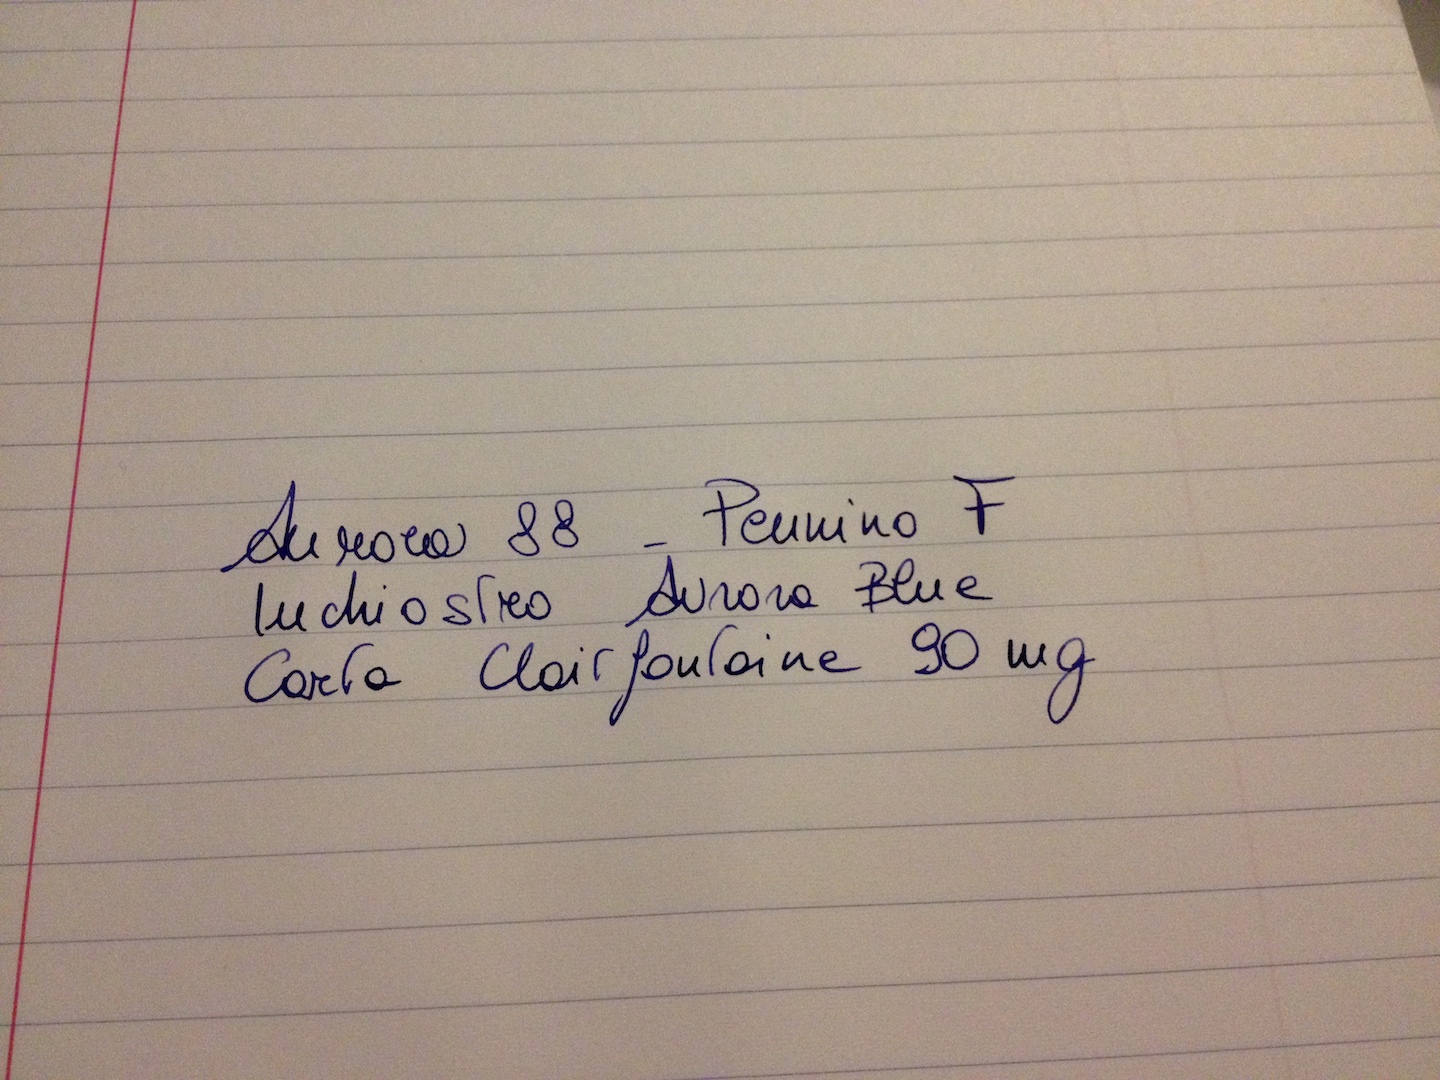 Aurora 88 - Pennino F
Inchiostro Aurora Blue
Carta Clairfontaine 90 mg